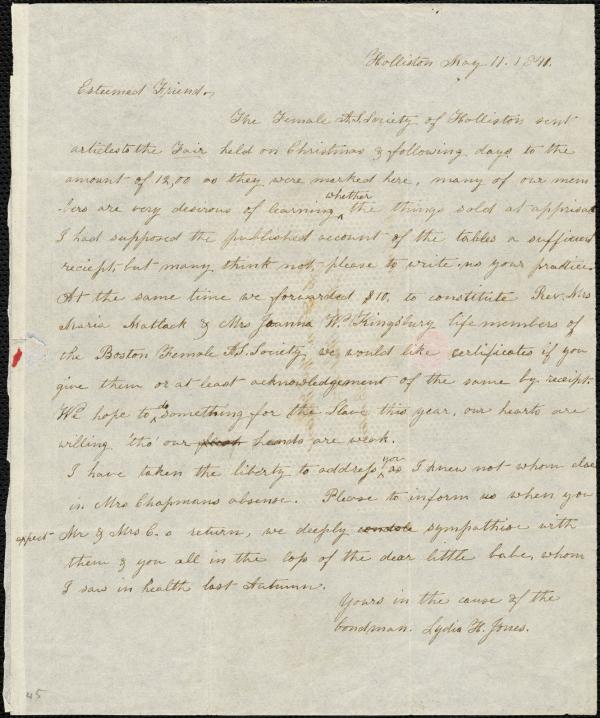 Holliston May 11. 1841.
Esteemed Friend,
The Female A.S. Society of Holliston sent
articles to the Fair held on Christmas & following days to the
amount of 12,00 as they were marked here, many of our mem
bers are very desirous of learning whether the things sold at apprisal
I had supposed the published account of the tables a sufficient
reciept, but many think not, please to write us your practice.
At the same time we forwarded $10, to constitute Rev. Mrs
Maria Matlack & Mrs Joanna W. Kingsbury life members of
the Boston Female A.S. Society we would like certificates if you
give them or at least acknowledgement of the same by reciept.
We hope to do something for the Slave this year, our hearts are
willing 'tho' our hands are weak.
I have taken the liberty to address you as I knew not whom else
in Mrs Chapmans absense. Please to inform us when you
expect Mr & Mrs C. s return, we deeply condole sympathise with
them & you all in the loss of the dear little babe, whom
I saw in health last Autumn.
Yours in the cause of the
bondman. Lydia H. Jones.
45